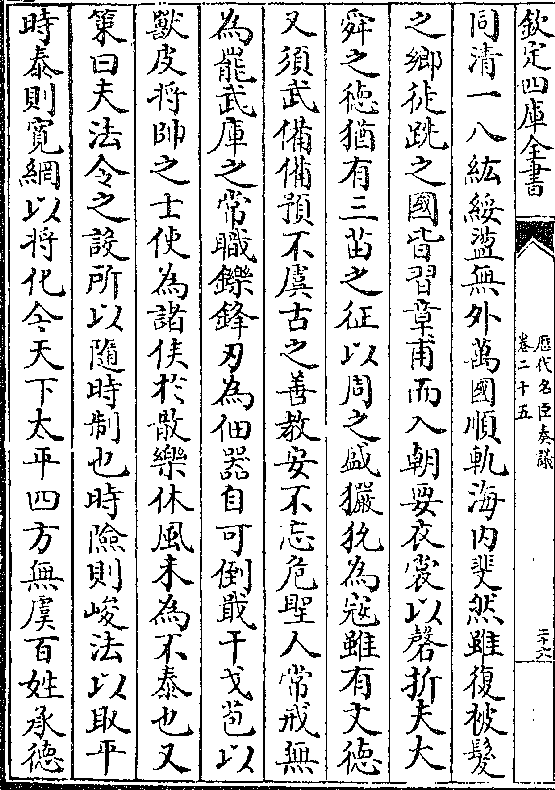 欽定四庫全書
歷代名臣奏議
卷二十五
同清一八紘綏盪無外萬國順軌海內斐然雖復被髮
之鄉徒跣之國皆習章甫而入朝要衣裳以磬折夫大
舜之德猶有三苗之征以周之盛玁狁為寇雖有文德
又須武備備預不虞古之善教安不忘危聖人常戒無
為罷武庫之常職鑠鋒刃為佃器自可倒戢干戈苞以
獸皮將帥之士使為諸侯於散樂休風未為不泰也又
策曰夫法令之設所以隨時制也時險則峻法以取平
時泰則寬網以將化今天下太平四方無虞百姓承德